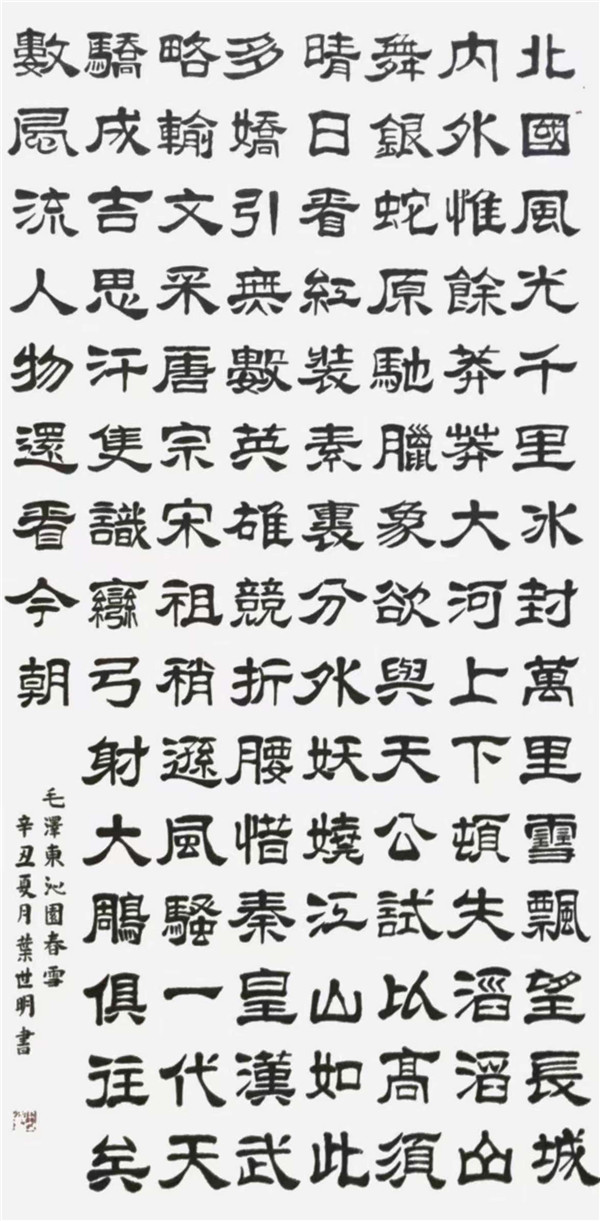 北國風光千里冰封萬里雪飄望長城
内外惟餘莽莽大河上下頓失滔滔山
舞銀蛇原馳臘象欲與天公試以高須
晴日看紅裝素裏分外妖嬈江山如此
多嬌引無數英雄競折腰惜秦皇漢武
略輸文采唐宗宋祖稍遜風騷一代天
驕成吉思汗隻識彎弓射大鵰俱往矣
數風流人物還看今朝
毛澤東沁園春雪
辛丑夏月葉世明書